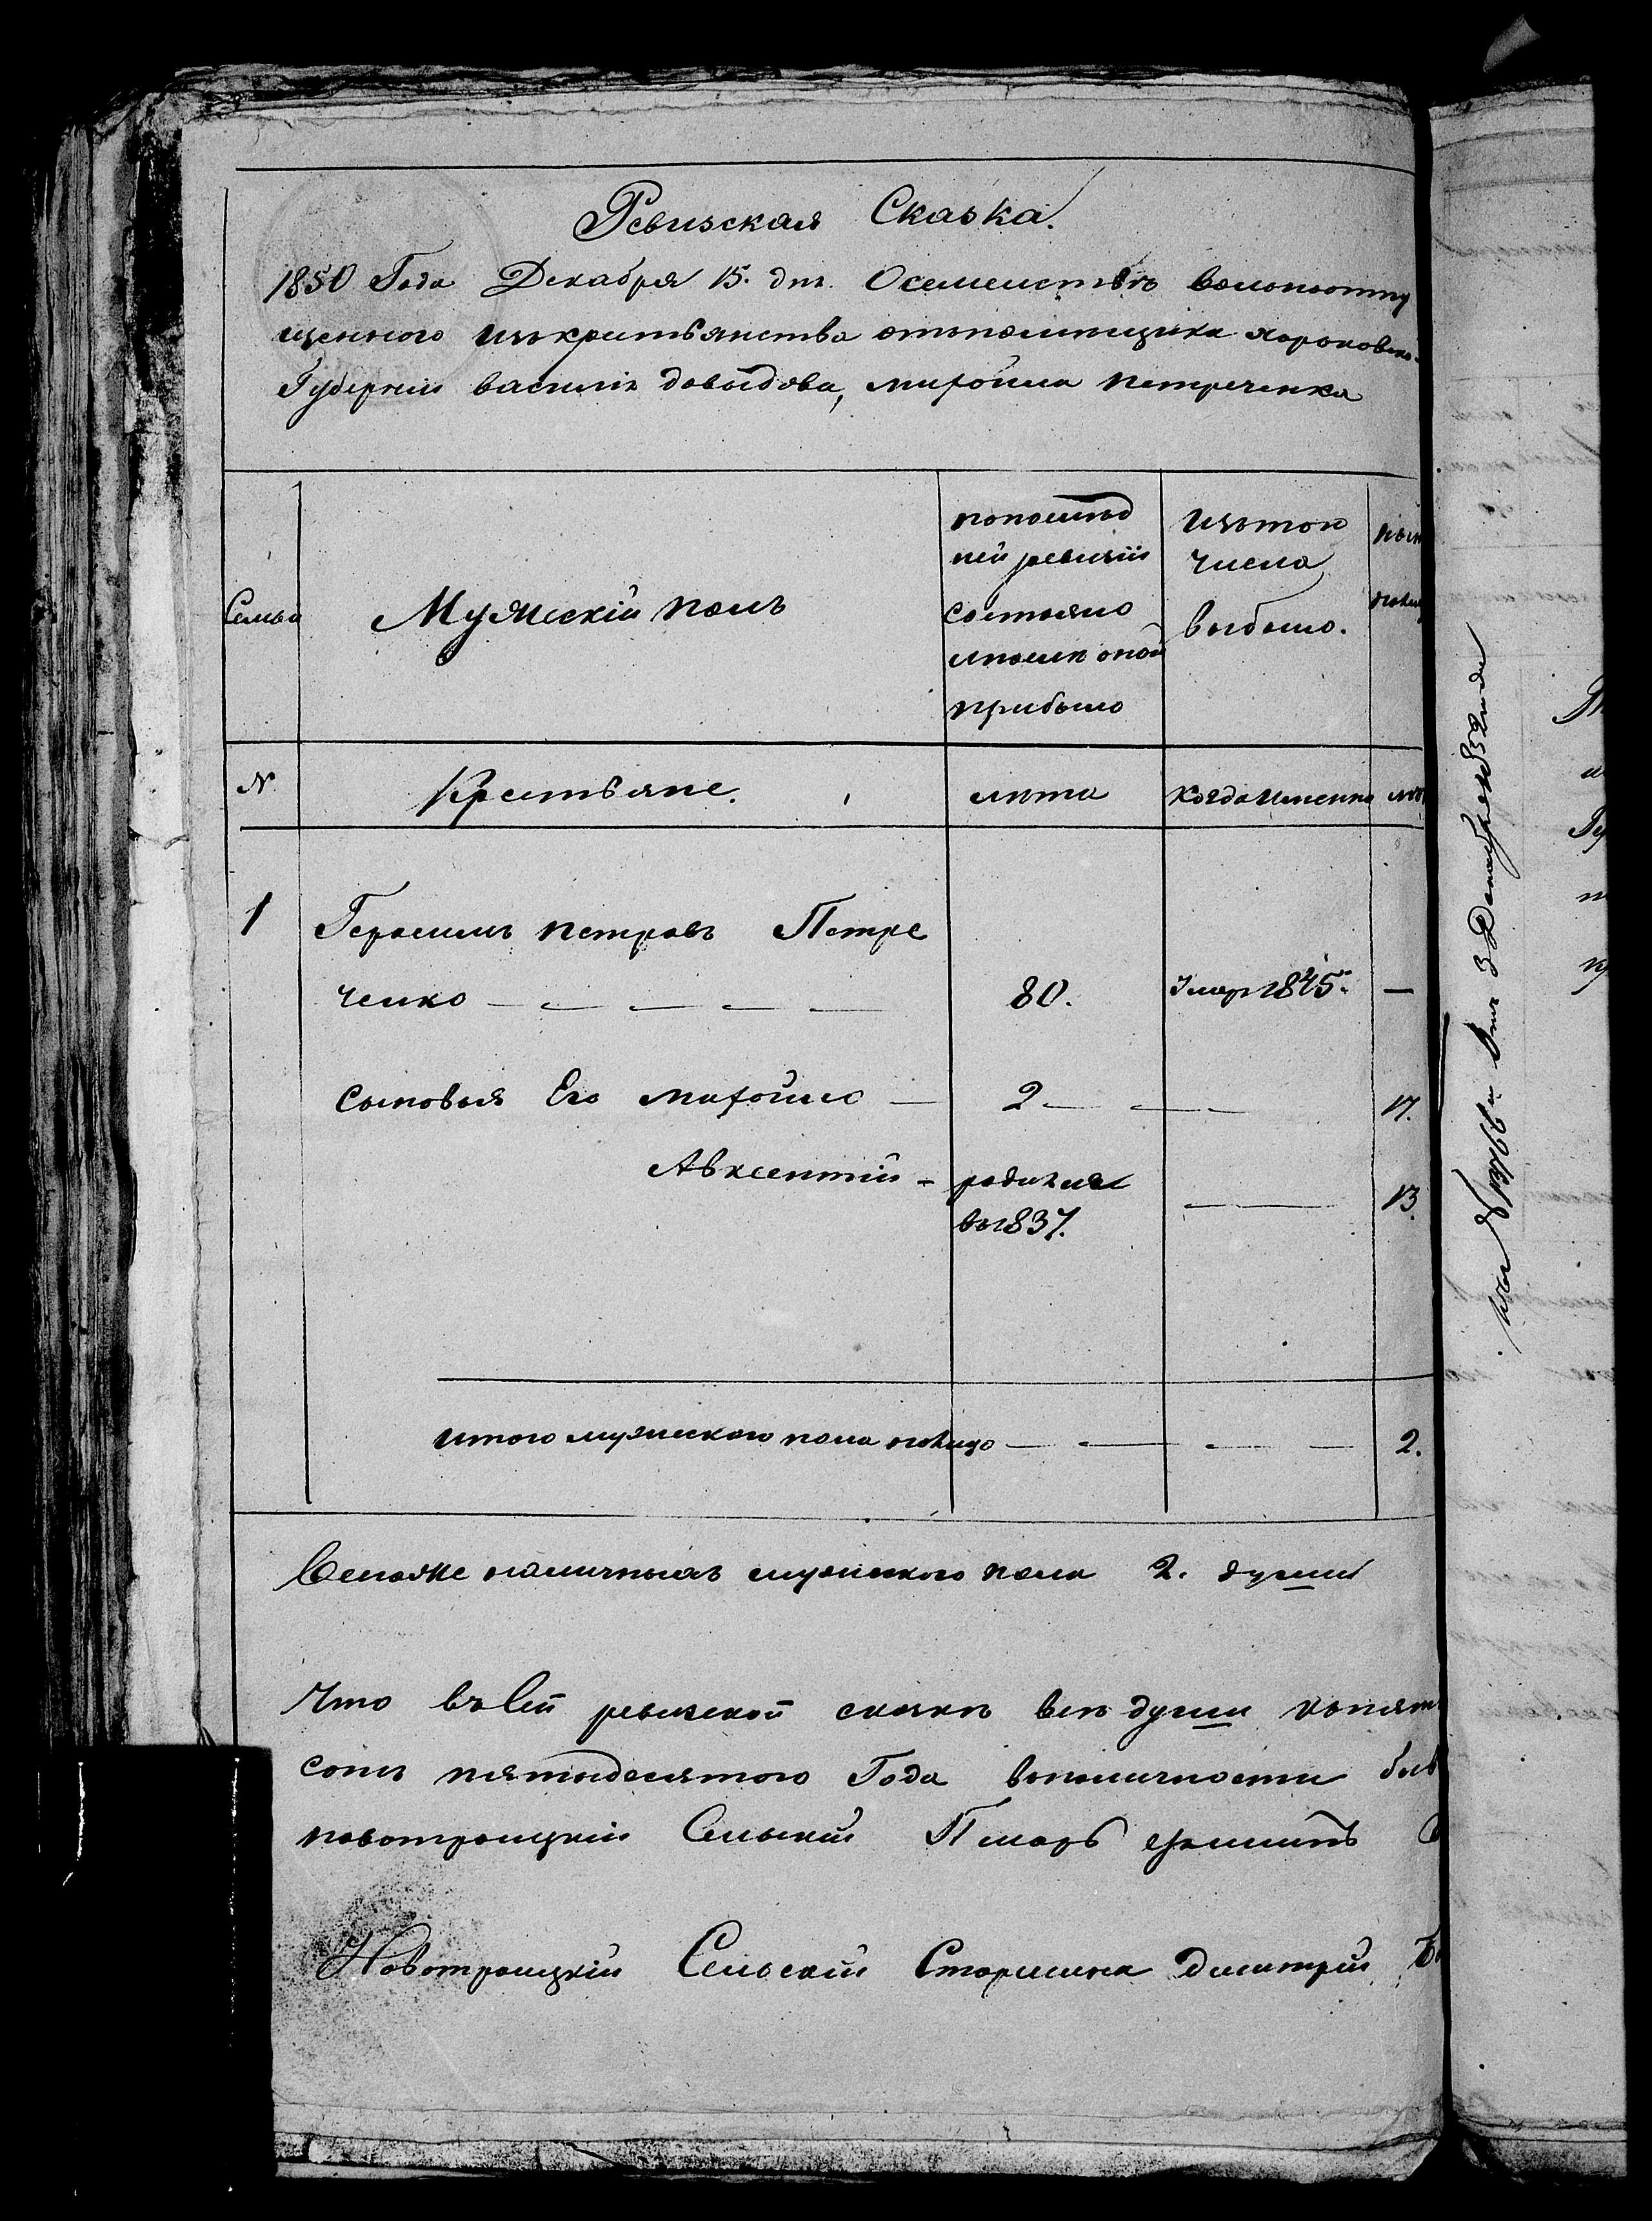 Ревизская Сказка.
1850 Года Декабря 15. дня. Осемействѣ вольноотпу
щенного изъкрестьянства отъпомещика харьковско
Губернии василія давыдова, михойла петреченка
Семьи
Мужескій полъ
попослѣд
ней ревизіи
состояло
ипослѣ оной
прибыло
Изътого
числа
выбыло.
№
Крестьяне.
лѣта
когдаименно
1
Герасимъ петровъ Петре
ченко
80.
Умеръ 1845.
—
сыновья Его михойло —
2
17.
Авксентій -
родился
въ1837.
13.
итого мужескаго пола налицо
2.
Всегоже наличныхъ мужескаго пола 2. души
Что въСей ревизской сказкѣ всѣ души
сотъ пятидесятого Года вналичности
новотроицкій Сельскій Писарь
Новотроицкій Сельскій Старшина Димитрий